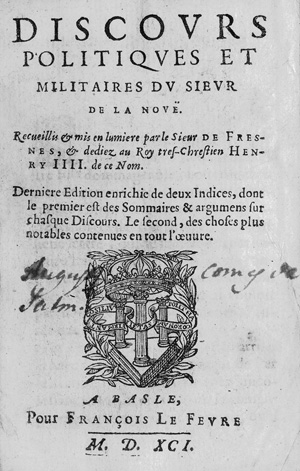 DISCOVRS
POLITIQVES ET
MILITAIRES DV SIEVR
DE LA NOVË.
Recueillis & mis en lumiere par le Sieur DE FRES-
NES, & dediez au Roy tres-Chrestien HEN-
RY IIII. de ce Nom.
Derniere Edition enrichie de deux Indices, dont
le premier est des Sommaires & argumens sur
chasque Discours. Le second, des choses plus
notables contenues en tout l'œuure.
comes de
Salm.
A BASLE,
Pour FRANÇOIS LE FEVRE
M. D. XCI.